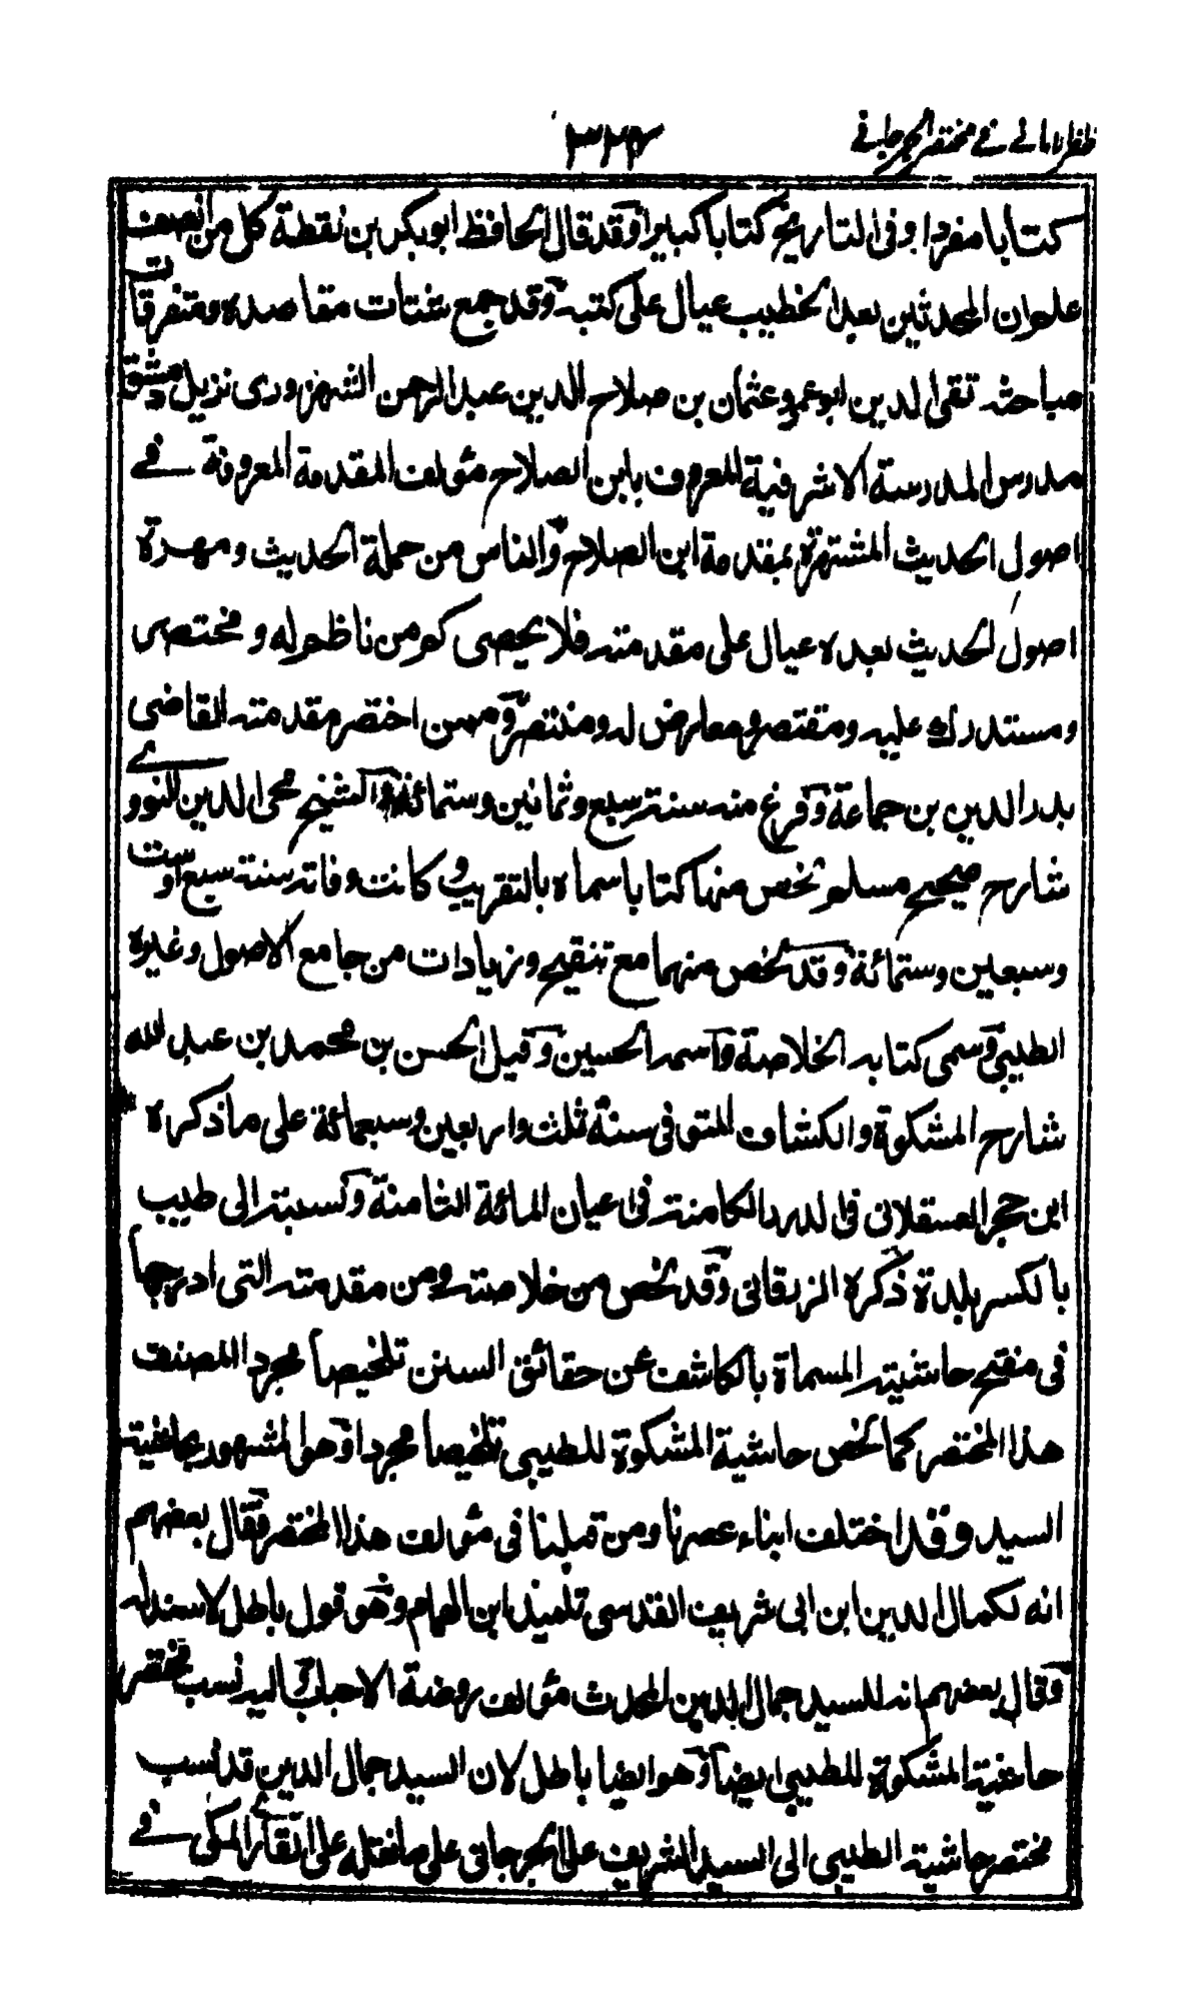 ظفر الامانی فی مختصر الجرجانی
٣٢٦
كتابا مفردا وفى التاريخ كتابا كبيرا وقد قال الحافظ ابو بكر بن نقطة كل من انصف
علم ان المحدثين بعد الخطيب عيال على كتبه وقد جمع شتات مقاصده ومتفرقات
مباحثه تقى الدين ابو عمرو عثمان بن صلاح الدين عبد الرحمن الشهزورى نزيل دمشق
مدرس المدرسة الاشرفية المعروف بابن الصلاح مؤلف المقدمة المعروفة فے
اصول الحديث المشتهرة بمقدمة ابن الصلاح والناس من حملة الحديث ومهرة
اصول الحديث بعده عيال على مقدمته فلا يحصى كم من ناظم له ومختصر
ومستدرك عليه ومقتصر ومعارض له ومنتصر وممن اختصر مقدمته القاضى
بدر الدين بن جماعة وفرغ منه سنة سبع وثمانين وستمائة والشيخ محى الدين النووے
شارح صحيح مسلم لخص منها كتابا سماه بالتقريب وكانت وفاته سنة سبع او ست
وسبعين وستمائة وقد لخص منهما مع تنقيح وزيادات من جامع الاصول وغيره
الطيبى وسمى كتابه الخلاصة واسمه الحسين وقيل الحسن بن محمد بن عبد الله
شارح المشكوة والكشاف المتوفى سنة ثلث واربعين وسبعمائة على ما ذكره
ابن حجر العسقلانى فى الدرر الكامنة فى اعيان المائة الثامنة ونسبته الى طيب
بالكسر بلدة ذكره الزرقانى وقد لخص من خلاصته ومن مقدمته التى ادرجها
فى مفتح حاشيته المسماة بالكاشف عن حقائق السنن تلخيصا مجردا المصنف
هذا المختصر كما لخص حاشية المشكوة للطيبى تلخيصا مجردا وهو المشهور بحاشية
السيد وقد اختلف ابناء عصرنا ومن قبلنا فى مؤلف هذا المختصر فقال بعضهم
انه لكمال الدين ابن ابى شريف القدسى تلميذ ابن الهمام وهو قول باطل لا سند له
وقال بعضهم انه للسيد جمال الدين المحدث مؤلف روضة الاحباب واليه نسب مختصر
حاشية المشكوة للطيبى ايضا وهو ايضا باطل لان السيد جمال الدين قد نسب
مختصر حاشية الطيبى الى السيد الشريف على الجرجانى على ما نقله على القارے المكى فے